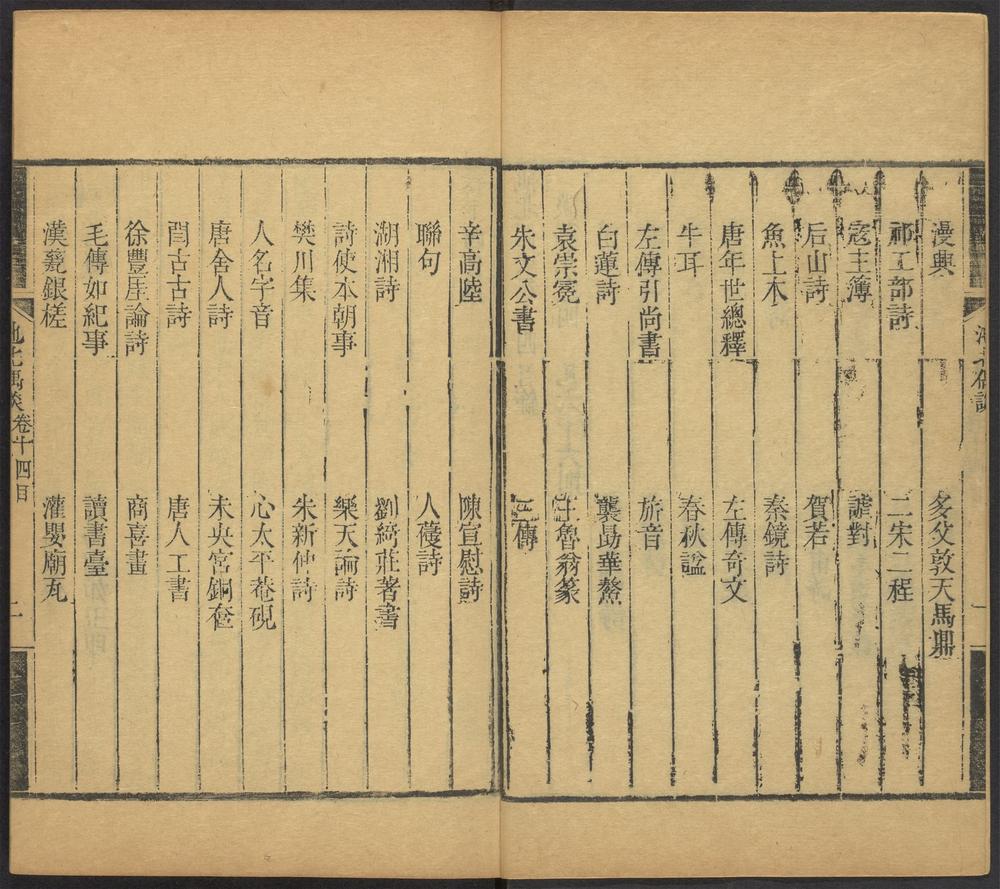 漫興 多父敦天馬鼎
祁工部詩 二朱二程
寇主簿 謔對
后山詩 賀若
魚上木 秦鏡詩
唐年世總釋 左傳奇文
牛耳 春秋諡
左傳引尚書 旂音
白蓮詩 襲勗華鰲
袁崇冕 王魯翁篆
朱文公書 傳
辛高陸 陳宣慰詩
聯句 人䕶詩
湖湘詩 劉綺莊著書
詩使本朝事 樂天論詩
樊川集 朱新仲詩
人名字音 心太平菴硯
唐舍人詩 未央宮銅奩
閆古古詩 唐人工書
徐豐厓論詩 商喜畫
毛傳如紀事 讀書臺
漢甏銀槎 灌嬰廟瓦
池北偶談 卷十四目 二